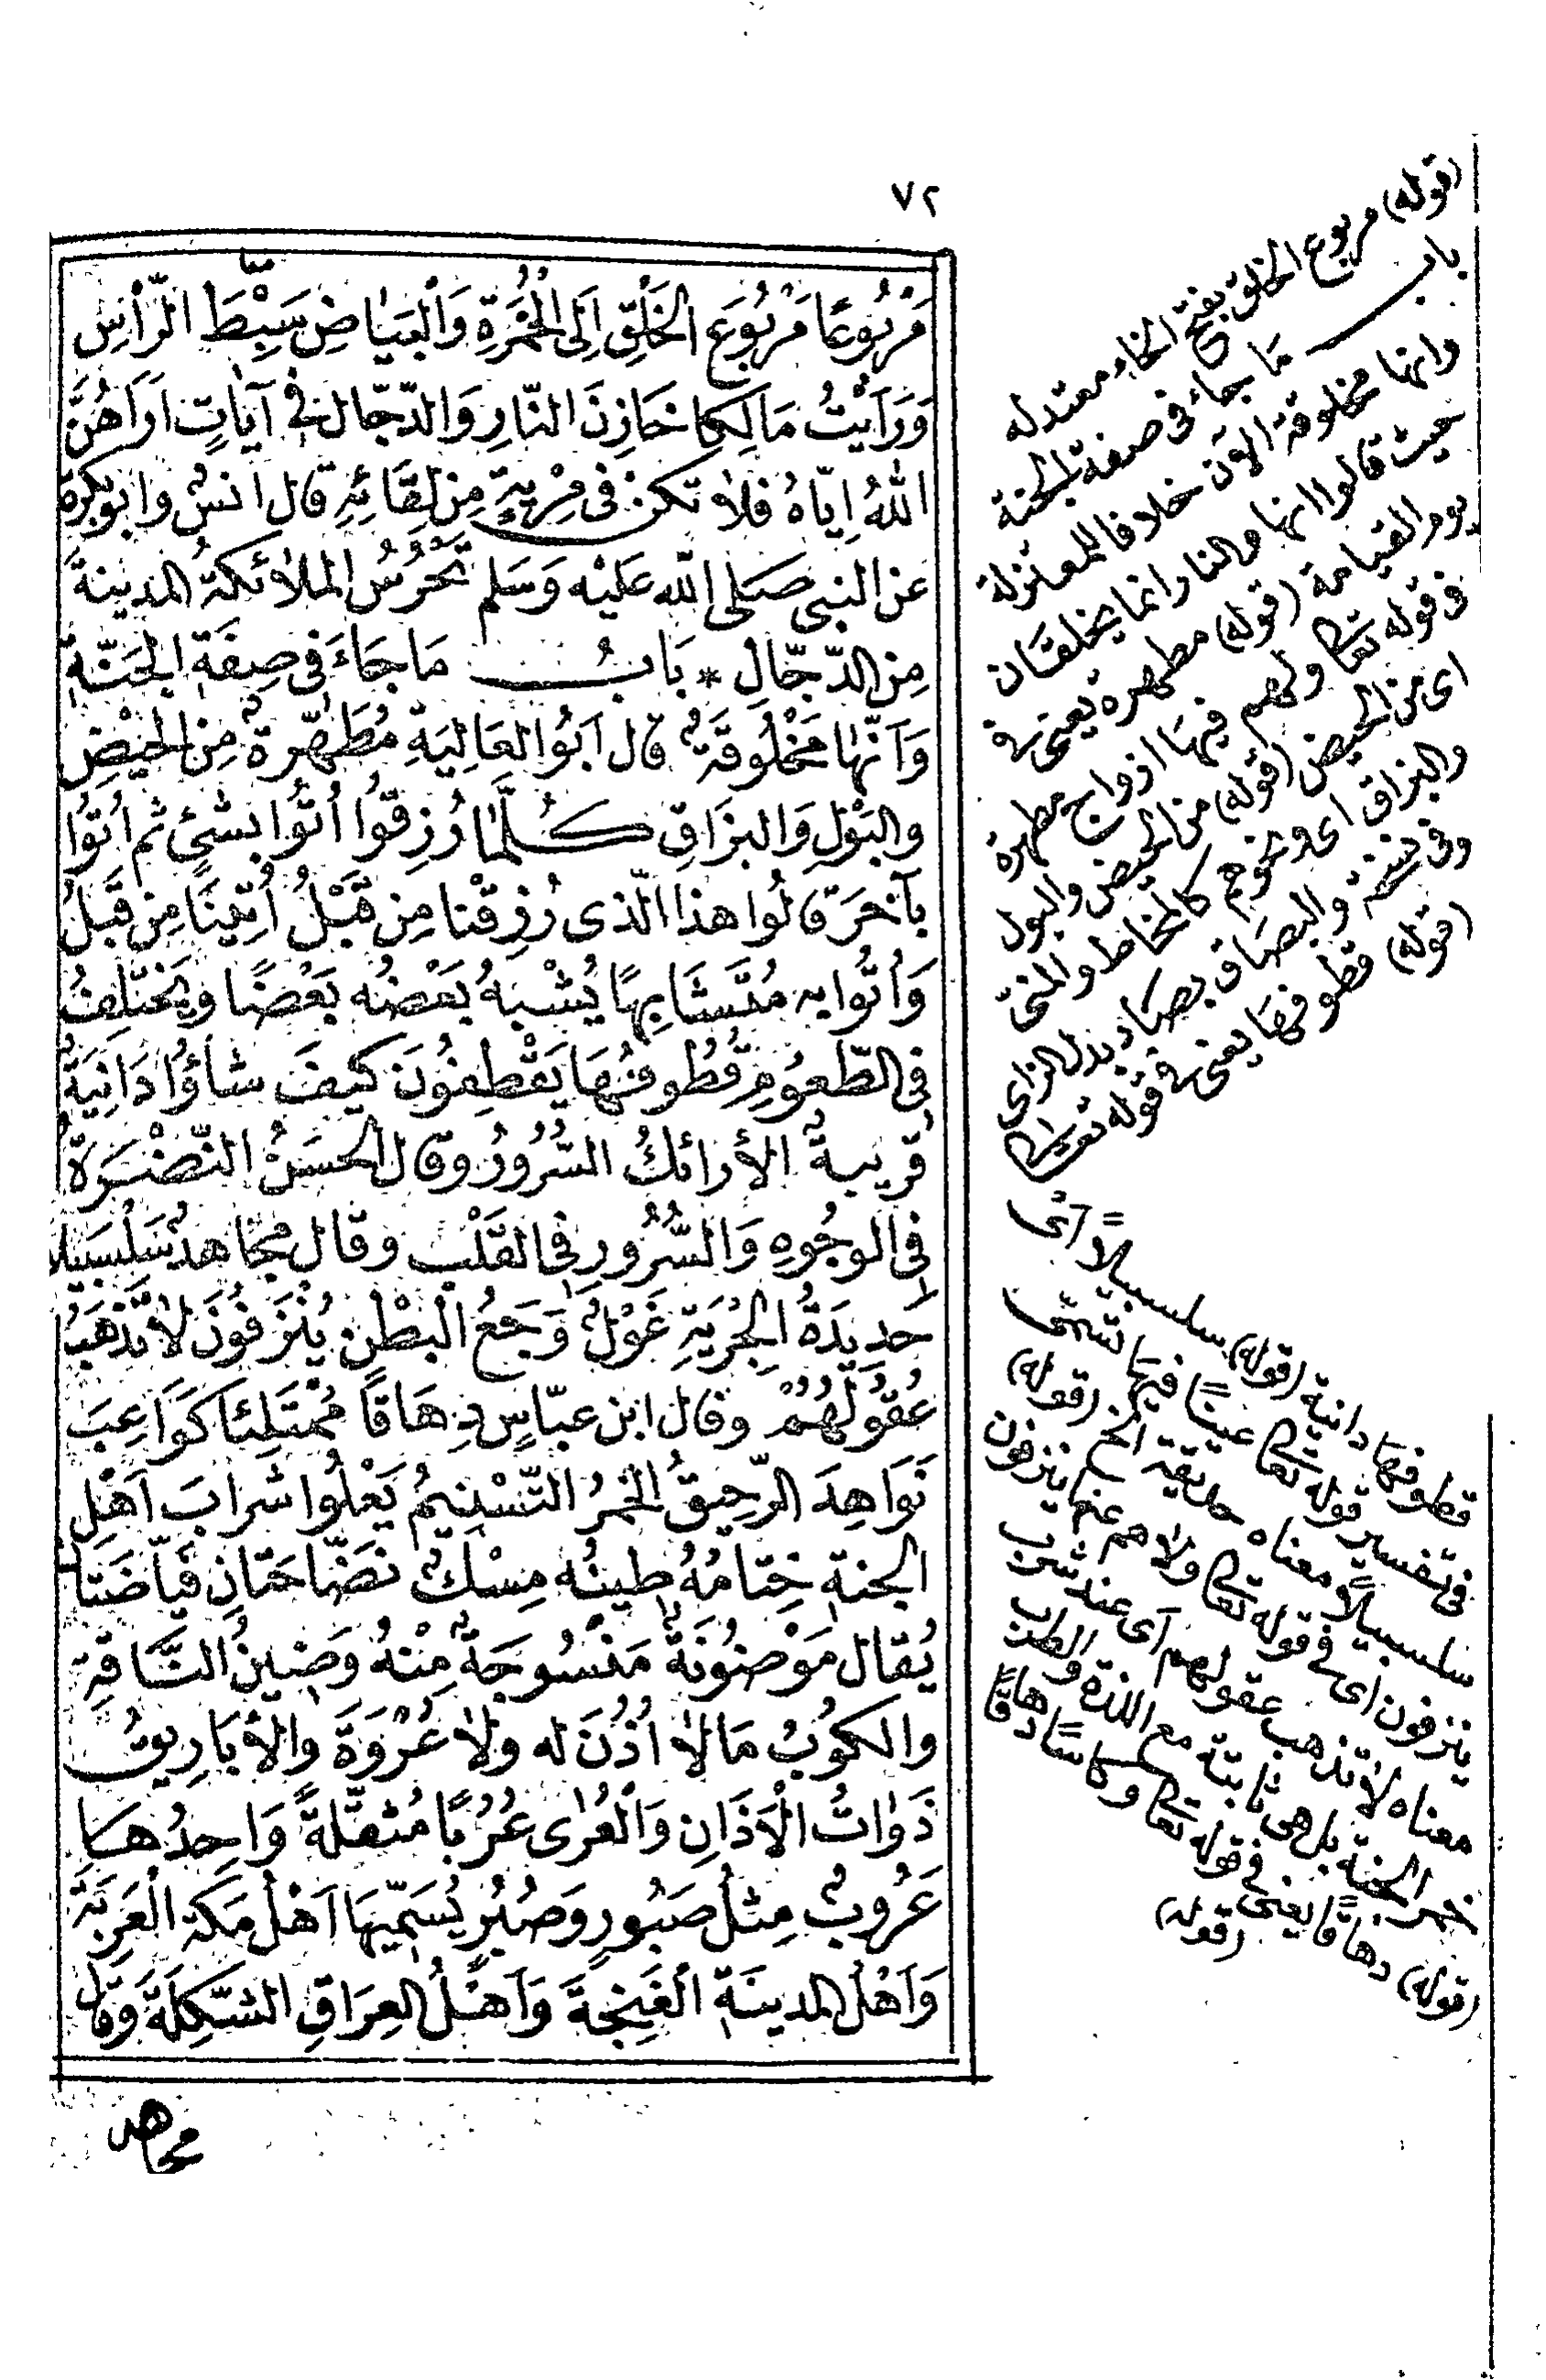 ٧٢
مَرْبُوعًا مَرْبُوعَ الخَلْقِ اِلَى الحُمْرَةِ وَالْبَيَاضِ سَبِْطَ الرَّأْسِ
وَرَأَيْتُ مَالِكًا خَازِنَ النَّارِ وَالدَّجَّالَ فِي آيَاتٍ اَرَاهُنَّ
اللهُ اِيَّاهُ فَلاَ تَكُنْ فِي مِرْيَةٍ مِنْ لِقَائِهِ قال انسٌ وابوبكرة
عن النبي صَلى الله عَليْه وَسَلم تَحْرُسُ الملاَئكةُ المدينةَ
مِنَ الدَّجَّالِ * بَابُ مَاجَاءَ في صِفَةِ الجَنَّةِ
وَأَنَّهَا مَخْلُوقَةٌ قال اَبُو العَالِيَةِ مُطَهَّرةٌ مِنَ الحَيْضِ
والبَوْلِ وَالبزَاقِ كُلَّمَا رُزِقُوا اُتُوا بشَيْئٍ ثم اُتُوا
بآخَرَ قالُوا هذا الَّذى رُزِقْنَا مِن قَبْلُ اُتِينَا مِن قَبْلُ
وَاُتُوا به مُتَشَابِهًا يُشْبِهُ بَعْضُه بَعْضًا ويَخْتَلِفُ
فِي الطُّعُومِ قُطُوفُهَا يَقْطِفُونَ كَيفَ شاؤُا دَانِيَةٌ
قَرِيبةٌ الأرائكُ السُّرُرُ وقال الحسَنُ النَّضْرَةُ
فِي الوُجُوهِ وَالسُّرُورُ فِي القَلْبِ وقال مجَاهدٌ سَلْسَبِيلاً
حَدِيدَةُ الجِرْيَةِ غَوْلٌ وَجَعُ الْبَطْنِ يُنْزَفُونَ لاَ تَذْهَبُ
عُقُولُهُمْ وقال ابن عبَّاسٍ دِهَاقًا مُمْتَلِئًا كَوَاعِبَ
نَوَاهِدَ الرَّحِيقُ الخَمرُ التَّسْنِيمُ يَعْلُوا شَرابَ اَهْلِ
الجنةِ خِتَامُهُ طِينُه مِسْكٌ نَضَّاخَتَانِ فَيَّاضَتَانِ
يُقَال مَوْضُونَةٌ مَنْسُوجَةٌ مِنْهُ وَضِينُ النَّاقةِ
والكُوبُ مَالاَ اُذُنَ له ولاَ عُرْوَةَ والأَبَارِيقُ
ذَوَاتُ الْآذَانِ وَالْعُرَى عُرُبًا مُثَقَّلةً وَاحِدُهَا
عَرُوبٌ مِثْلُ صَبُورٍ وَصُبُرٍ يُسَمِّيهَا اَهْلُ مَكةَ الْعَرِبَةَ
وَاَهْلُ المدينَةِ الغَنِجَةَ وَاَهْلُ العِرَاقِ الشَّكِلَةَ وَقال
مجاهد
(قوله) مربوع الخلق بفتح الخاء معتدله
باب ما جاء فى صفة الجنة
وانها مخلوقة الآن خلافا للمعتزلة
حيث قالوا انها والنار انما يخلقان
يوم القيامة (قوله) مطهرة يعنى
فى قوله تعا ولهم فيها ازواج مطهرة
اى من الحيض (قوله) من الحيض والبول
والبزاق اى ونحوهم كالمخاط والمنى
وفى نسخة والبصاق بصاد بدل الزاى
(قوله) قطوفها يعنى قوله تعالى
قطوفها دانية (قوله) سلسبيلاً اى
فى تفسير قوله تعا عيناً فيها تسمى
سلسبيلاً معناه حديدة الخ (قوله)
ينزفون اى فى قوله تعا ولا هم عنها ينزفون
معناه لا تذهب عقولهم اى عند شرب
خمر الجنة بل هى ثابتة مع اللذة والطرب
(قوله) دهاقا يعنى فى قوله تعا وكاساً دهاقا
(قوله)